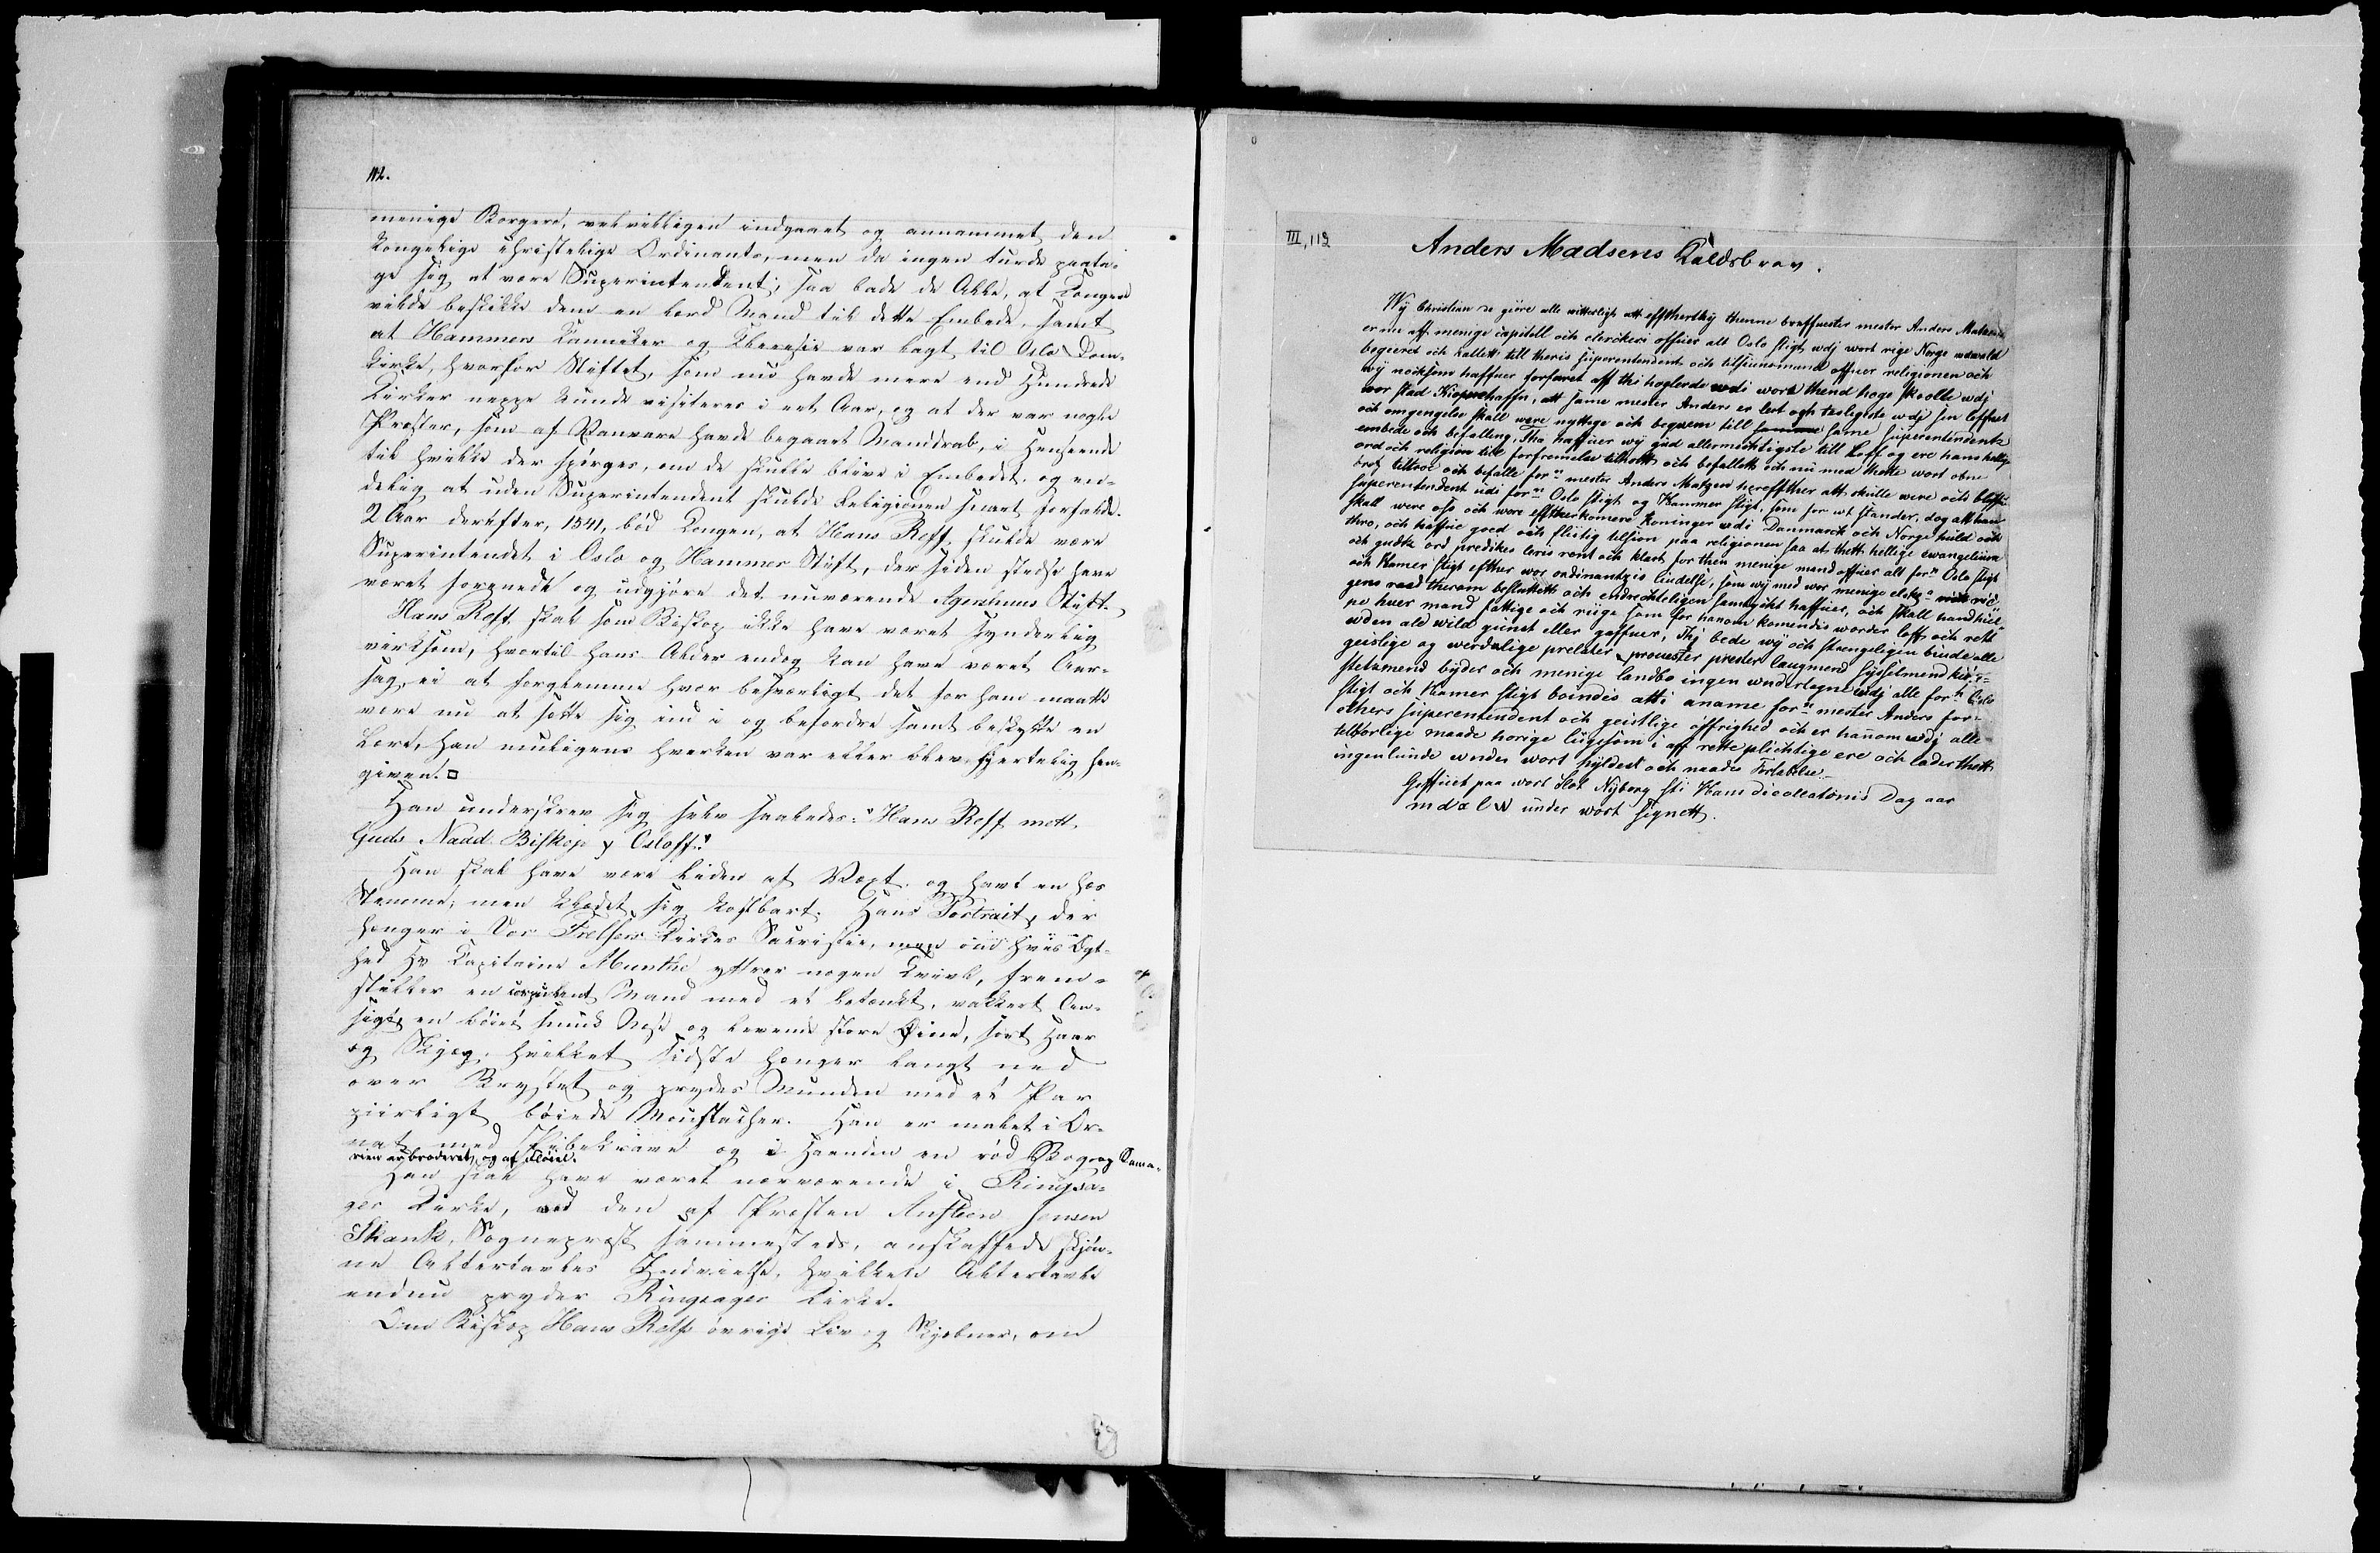 112.
menige Borgere, velvilligen indgaaet og annammet den
Kongelige christelige Ordinants, men da ingen turde paata-
ge sig at være Superintendent; saa bade de Alle, at Kongen
vilde beskikke dem en lærd Mand til dette Embede, samt
at Hammers Canniker og Cleresie var lagt til Oslo Dom-
kirke, hvorfor Stiftet, som nu havde mere end Hundrede
Kirker neppe kunde visiteres i eet Aar, og at der var nogle
Præster, som af Vanvare havde begaaet Manddrab, i Henseende
til hvilke der spørges, om de skulle blive i Embedet, og en-
delig at uden Superintendent skulde Religionen snart forfalde.
2 Aar derefter, 1541, bød Kongen, at Hans Reff skulde være
Superintendet i Oslo og Hammer Stift, der siden stedse have
været forenede og udgjøre det nuværende Agershuus Stift.
Hans Reff skal som Biskop ikke have været synderlig
virksom, hvortil hans Alder endog kan have været Aar-
sag, ei at forglemme hvor besværligt det for ham maatte
være nu at sætte sig ind i og befordre samt beskytte en
Lære, han muligens hverken var eller blev hjertelig hen-
given.
Han underskrev sig selv saaledes: "Hans Reff mett.
Guds Naad. Biskop y Osloff."
Han skal have være liden af Vext og havt en hæs
Stemme; men klædet sig kostbart. Hans Portrait, der
hænger i Vor Frelsers Kirkes Sacristie, men om hvis Ægt-
hed Hr Capitaine Munthe yttrer nogen Tvivl, frem-
stiller en corpulent Mand med et betænkt, vakkert An-
sigt, en bøiet smuk Næse og levende store Øine, sort Haar
og Skjæg, hvilket sidste hænger langt ned
over Brystet og prydes Munden med et Par
ziirligt bøiede Moustacher. Han er malet i Or-
nat med Pibekrave og i Haanden en rød Bog og Sama-
rien er broderet, og af Fløiel.
Han skal have været nærværende i Ringsa-
ger Kirke, ved den af Præsten Ansteen Jonsen
Skank, Sognepræst sammesteds, anskaffede skjøn-
ne Altertavles Indvielse, hvilken Altertavle
endnu pryder Ringsager Kirke.
Om Biskop Hans Reffs øvrige Liv og Skjebner, om
III, 112
Anders Madsens Kaldsbrev.
Wÿ Christian &c giøre alle witterligt att effttherthÿ thenne breffuester mester Anders Matzen
er nu aff menige capitell och clerckeri offuer alt Oslo stigt wdj wort rige Norge udwald
begieret och kallett till theris superentendent och tilsiunsmand offuer religionen och
wÿ nocksom haffuer forfaret aff thi høglerde wdi wore thend høge skoolle wdj
wor stad Kiøpnehaffn, att same mester Anders er lert och tesligeste wdj sin leffnet
och omgengelse skall were nyttege och bequem till same superentendentz
embede och befalling, Tha haffuer wÿ gud allermechtigste till Loff og ere hans hellige
ord och religion till forfremelse tilbett och befallett och nu med thette wort obne
breff tiltroe och befalle forn mester Anders Matzen hereffther att skulle were och bliffue
superentendent udi forn Oslo stigt og Hammer stigt, som for wt stander, dog att han
skall were oss och wore effterkomere Koninger udi Danmarck och Norge huld och
thro, och haffue goed och flittig tilsiun paa religionen saa at thett hellige ewangelium
och gudtz ord predikes leris rent och klart for then menige mand offuer alt forn Oslo stigt
och Hamer stigt efther wor ordinantzis liudelse, som wÿ med wor menige elskn rii-
gens raad therom besluttett och endrechteligen samtyckt haffuer, och skall handhiel-
pe huer mand fattige och riige som for hanom komendis worder loff och rett
wden ald wild gunst eller gaffuer, Thj bede wÿ och strengeligen biude alle
geistlige og werdslige prelater prouester prester laugmend sysselmend kir-
stetzmend byder och menige landbo ingen wndertegne wdj alle forn Oslo
stigt och Hamer stigt boindis atti aname forn mester Anders for
ethers superentendent och geistlige øffrighed och er hannom wdj alle
tilbørlige maade horige liigesom i aff rette plichtige ere och lader thett
ingenlunde wnder wort hyldest och naades Fortabelse.
Geffuet paa wort Slot Nyborg sti Hans decollationis Dag aar
mdxlv under wort signett.